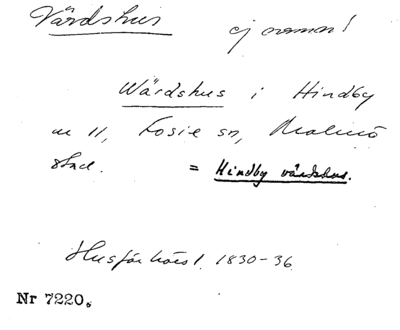 Värdshus ej ovanan!
Wärdshus i Hindby
nr 11, Fosie sn, Malmö
stad. = Hindby värdshus.
Husförhörsl. 1830-36
Nr 7220.